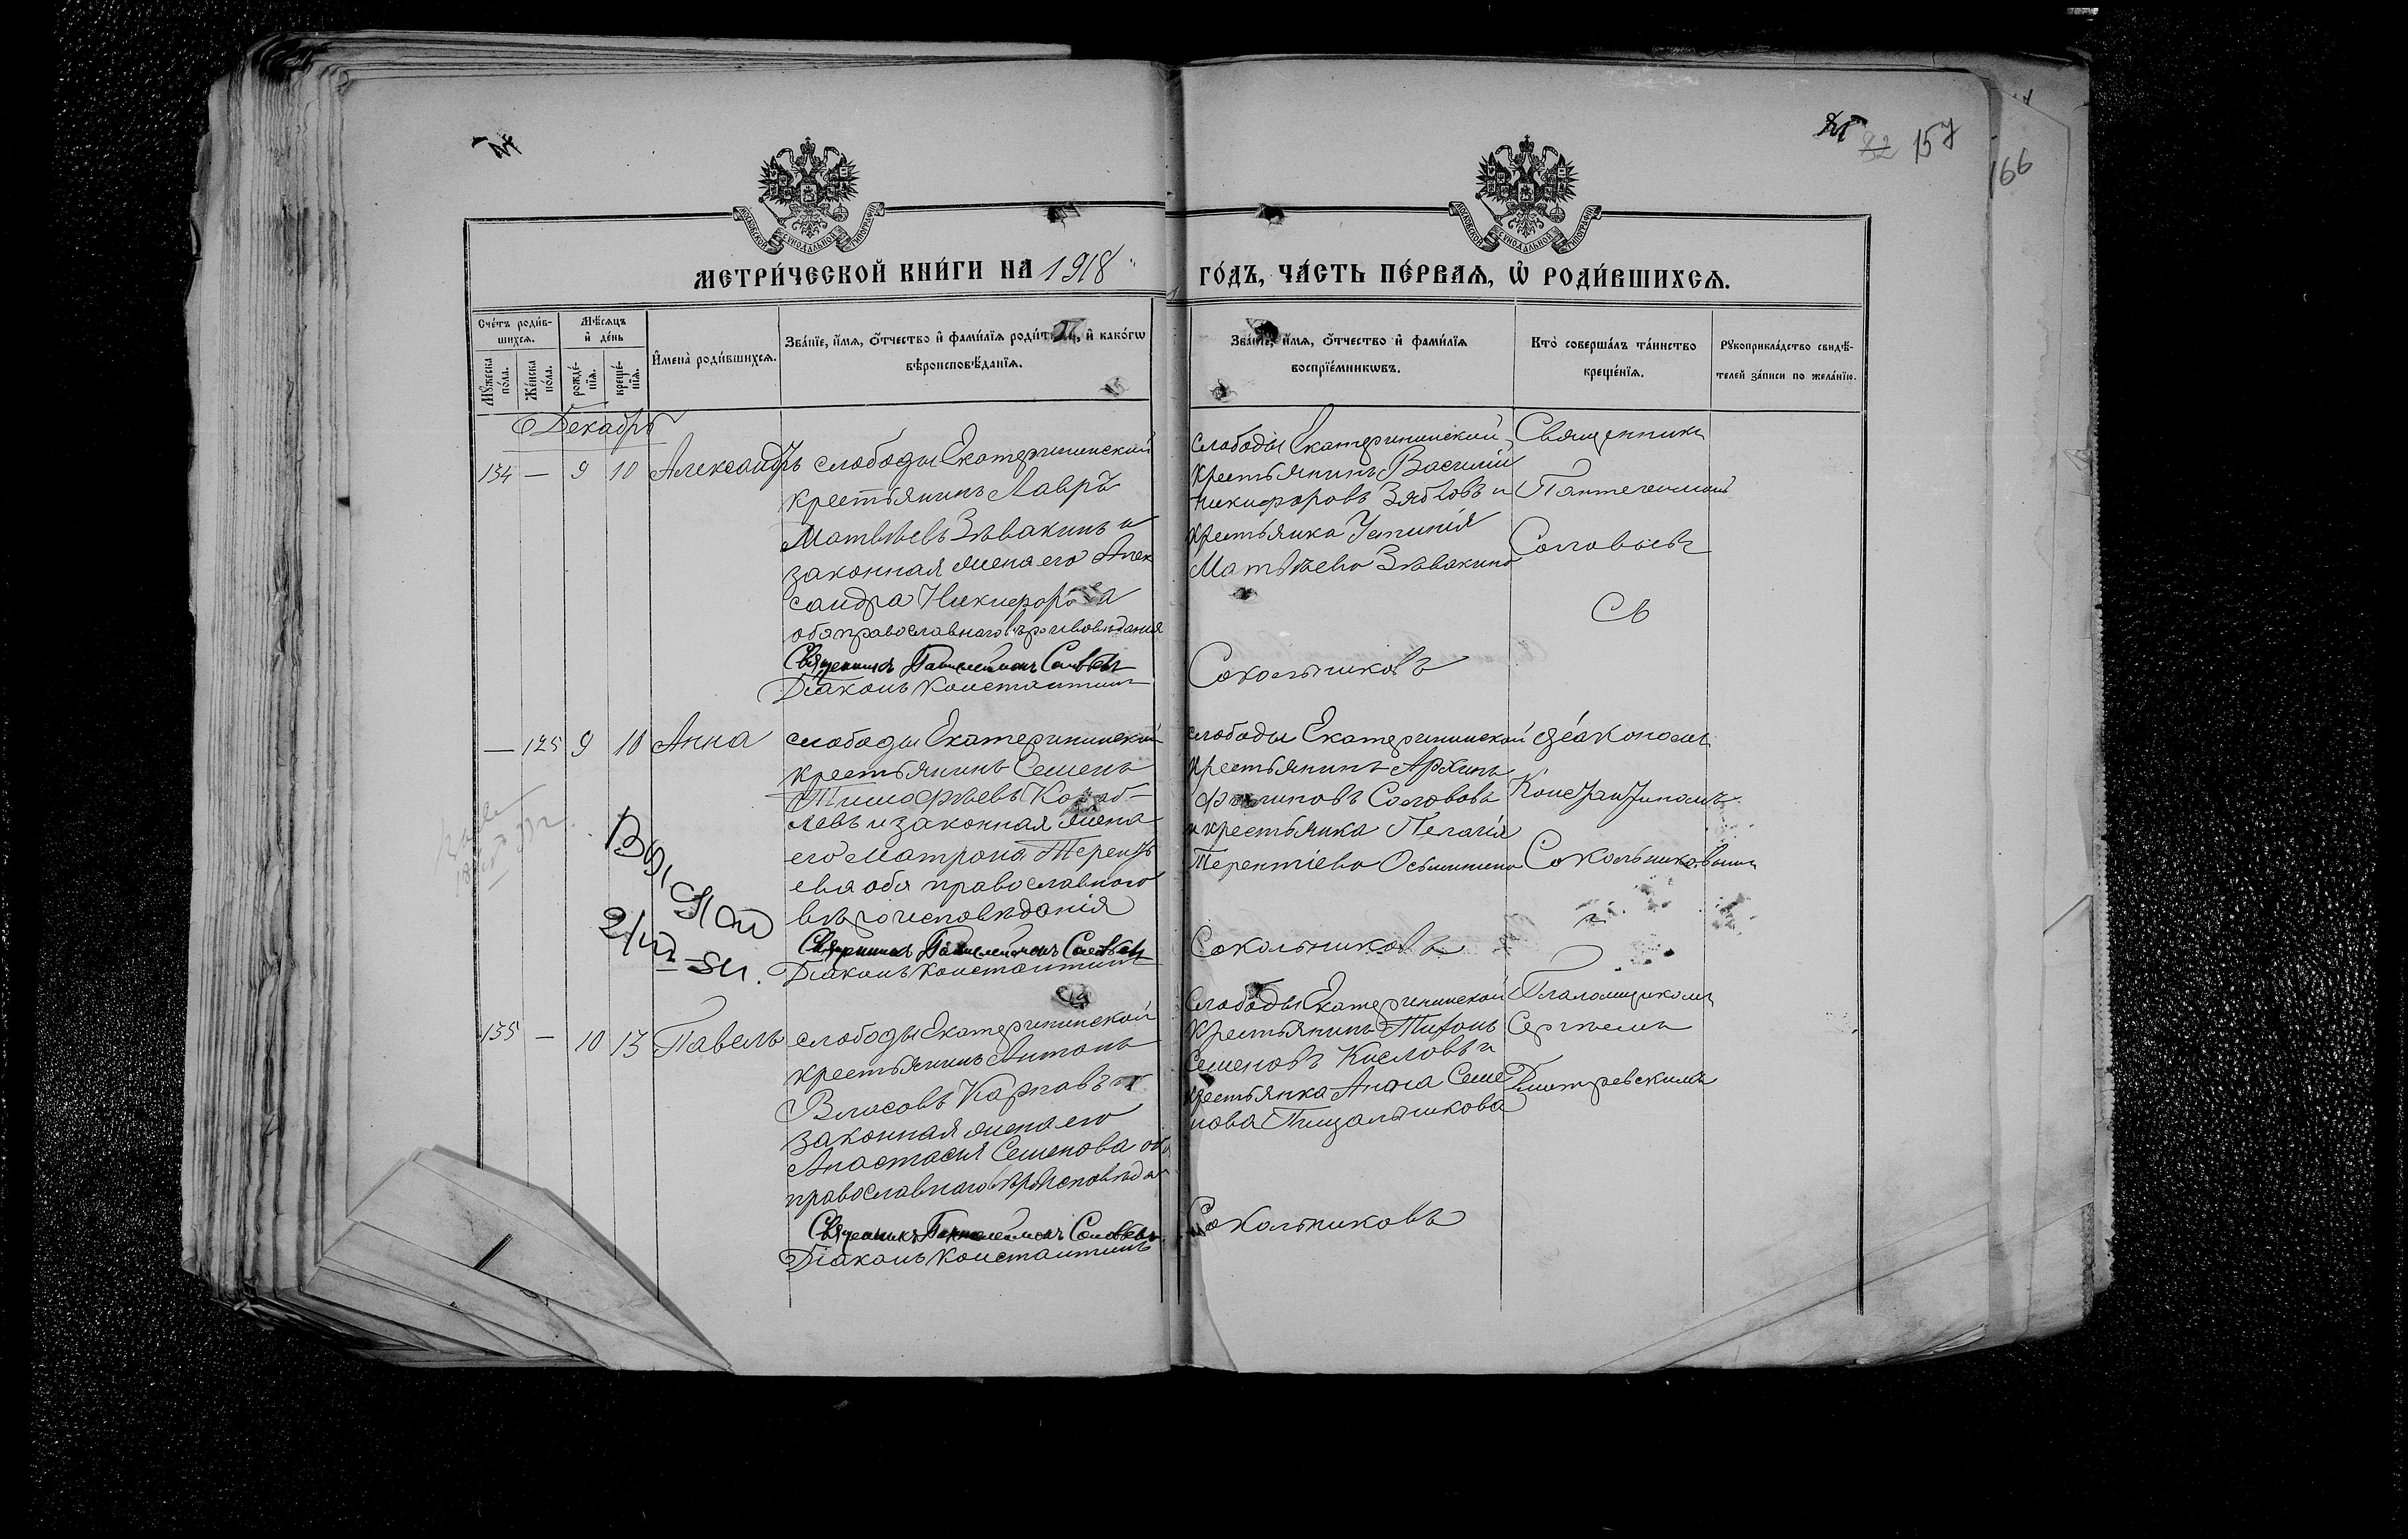 82 157
166
МОСКОВСКОЙ СѴНОДАЛЬНОЙ ТИПОГРАФІИ
МОСКОВСКОЙ СѴНОДАЛЬНОЙ ТИПОГРАФІИ
МЕТРИ́ЧЕСКОЙ КНИ́ГИ НА 1918
ГО́ДЪ, ЧА́СТЬ ПЕ́РВАѦ, Ѡ҆ РОДИ́ВШИХСѦ.
Сче́тъ роди́в-
шихсѧ.
Мꙋ́жеска по́ла.
Же́нска по́ла.
Мѣ́сѧцъ
и҆ де́нь
рожде́-
нїѧ.
креще́-
нїѧ.
И҆мена̀ роди́вшихсѧ.
Зва́нїе, и҆́мѧ, ѻ҆́тчество и҆ фами́лїѧ роди́телей, и҆ како́гѡ
вѣроисповѣ́данїѧ.
Зва́нїе, и҆́мѧ, ѻ҆́тчество и҆ фами́лїѧ
воспрїе́мникѡвъ.
Кто̀ соверша́лъ та́инство
креще́нїѧ.
Рꙋкоприкла́дство свидѣ́-
телей за́писи по жела́нїю.
Декабрь
134 — 9 10 Александръ
слободы Екатерининской
крестьянинъ Лавръ
Матвѣевъ Зѣвакинъ и
законная жена его Алек
сандра Никифорова
оба православнаго вѣроисповѣданія
Священникъ Пантелеймонъ Соловьевъ
Діаконъ Константинъ
слободы Екатерининской
крестьянинъ Василій
Никифоровъ Зябловъ и
крестьянка Устинія
Матвѣева Зѣвакина
Сокольниковъ
Священникъ
Пантелеимонъ
Соловьевъ
съ
— 125 9 10 Анна
слободы Екатерининской
крестьянинъ Семенъ
Тимофѣевъ
левъ и законная жена
его Матрона Терентъ
ева оба православного
вѣроисповѣданія
Священникъ Пантелеймонъ Соловьевъ
Діаконъ Константинъ
слободы Екатерининской
крестьянинъ Архипъ
Филиповъ Солововъ
и крестьянка Пелагія
Терентіева Осьминина
Сокольниковъ
діакономъ
Константиномъ
Сокольниковымъ
135 — 10 13 Павелъ
слободы Екатерининской
крестьянинъ Антонъ
Власовъ Карповъ и
законная жена его
Анастасия Семенова оба
православнаго вѣроисповѣда
Священникъ Пантелеймонъ Соловьевъ
Діаконъ Константинъ
слободы Екатерининской
крестьянинъ Тихонъ
Семеновъ Кисловъ и
крестьянка Анна Семе
нова Пищальникова
Сокольниковъ
Псаломщикомъ
Сергѣемъ
Дмитревскимъ